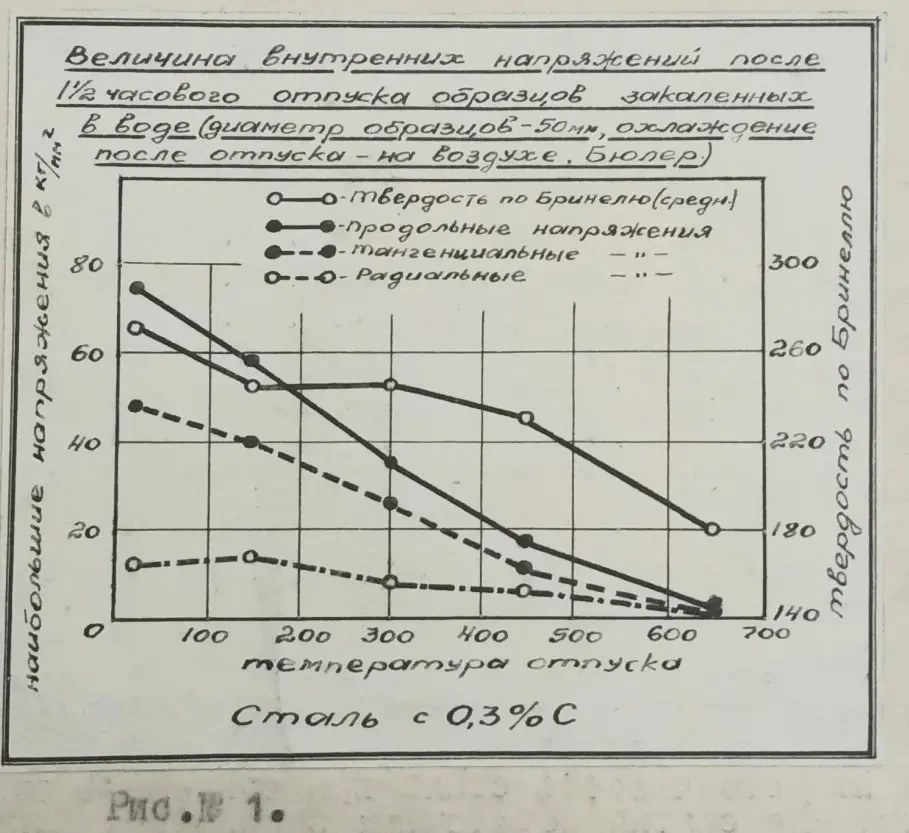 Величина внутренних напряжений после
1½ часового отпуска образцов закаленных
в воде (диаметр образцов - 50мм, охлаждение
после отпуска - на воздухе. Бюлер)
наибольшие напряжения в кг/мм²
твердость по Бринеллю
-Твердость по Бринелю (средн.)
-Продольные напряжения
-Тангенциальные — " —
- Радиальные — " —
80 300
60 260
40 220
20 180
140
0 100 200 300 400 500 600 700
температура отпуска
Сталь с 0,3% С
Рис.№ 1.